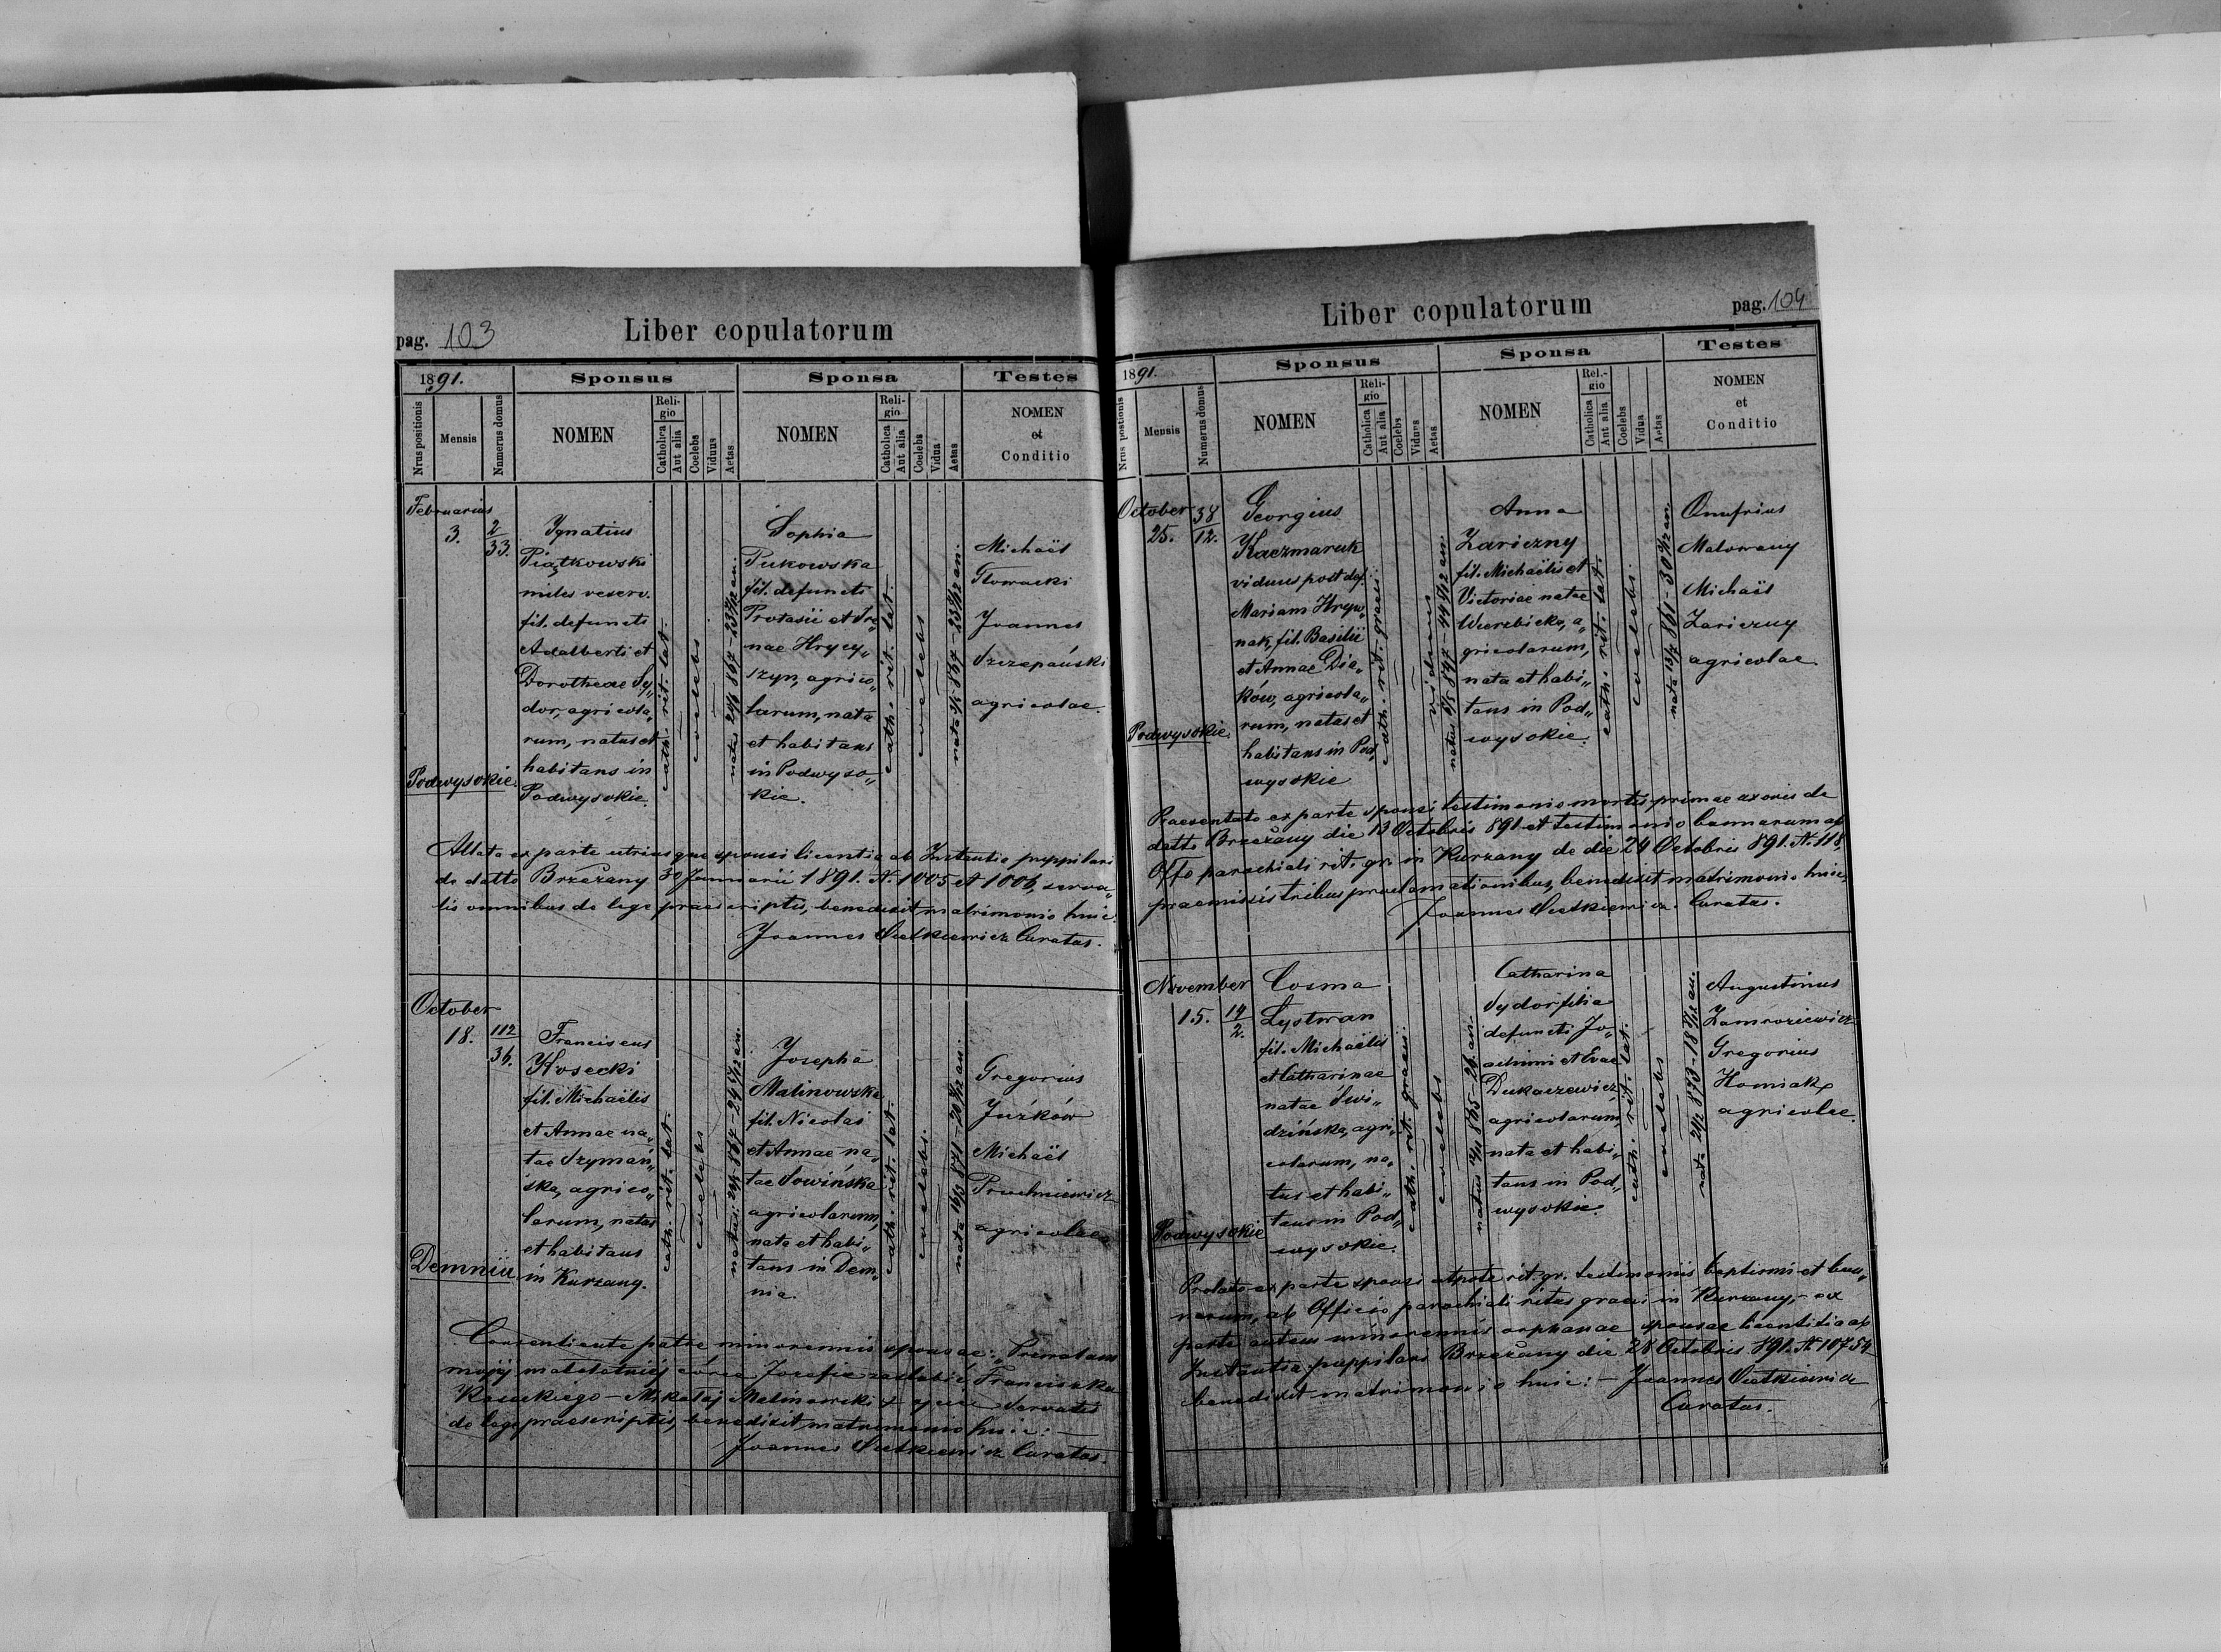 pag. 103
Liber copulatorum
1891.
Sponsus
Sponsa
Testes
Nrus positionis
Mensis
Numerus domus
NOMEN
Reli-
gio
Catholica
Aut alia
Coelebs
Viduus
Aetas
NOMEN
Reli-
gio
Catholica
Aut alia
Coelebs
Vidua
Aetas
NOMEN
et
Conditio
Februarius
3.
2
33.
Podwysokie
Ignatius
Piątkowski
miles reserv.
fil. defuncti
Adalberti et
Dorotheae Sy„
dor, agricola„
rum, natus et
habitans in
Podwysokie.
cath. rit. lat.
coelebs
Sophia
Pukowska
fil. defuncti
Protasii et Ire„
nae Hrycy„
szyn, agrico„
larum, nata
et habitans
in Podwyso„
kie.
cath. rit. lat.
coelebs
Michaël
Głowacki
Joannes
Szczepański
agricolae.
Allata ex parte utriusque sponsi licentia ab Instantia puppilari
de datto Brzeżany 30 Januarii 1891. N. 1005 et 1006, serva„
tis omnibus de lege praescriptis, benedixit matrimonio huic
Joannes Curatus.
October
18.
112
36.
Demnia
Franciscus
Kosecki
fil. Michaëlis
et Annae na„
tae Szymań„
ska, agrico„
larum, natus
et habitans
in Kurzany.
cath. rit. lat.
coelebs
Josepha
Malinowska
fil. Nicolai
et Annae na„
tae Sowińska
agricolarum,
nata et habi„
tans in Dem„
nia.
cath. rit. lat.
coelebs.
Gregorius
Juźków
Michaël
Pruchniewicz
agricolae
Consentiente patre minorennis sponsae: „
mojéj małoletniéj córce Józefie zaślubić Franciszka
Koseckiego – Mikołaj Malinowski + ojciec Servatis
de lege praescriptis, benedixit matrimonio huic: –
Joannes Curatus.
Liber copulatorum
pag. 104
1891.
Sponsus
Sponsa
Testes
Nrus positionis
Mensis
Numerus domus
NOMEN
Reli-
gio
Catholica
Aut alia
Coelebs
Viduus
Aetas
NOMEN
Rel.-
gio
Catholica
Aut alia
Coelebs
Vidua
Aetas
NOMEN
et
Conditio
October
25.
38
12.
Podwysokie.
Georgius
Kaczmaruk
viduus post def.
Mariam Hryw„
nak, fil. Basilii
et Annae Dia„
kow, agricola„
rum, natus et
habitans in Pod„
wysokie
cath. rit. graeci.
viduus
Anna
Zariczny
fil. Michaëlis et
Victoriae natae
Wierzbicka, a„
gricolarum,
nata et habi„
tans in Pod„
wysokie.
cath. rit. lat.
coelebs.
Onufrius
Malowany
Michaël
Zariczny
agricolae.
Praesentato ex parte sponsi testimonio mortis primae uxoris de
datto Brzeżany die 13 Octobris 891 et testimonio bannorum ab
Offo parochiali rit. gr. in Kurzany de die 24 Octobris 891. N. 118,
praemissis tribus proclamationibus, benedixit matrimonio huic,
Joannes Curatus.
November
15.
19
2.
Podwysokie
Cosma
Lystwan
fil. Michaëlis
et Catharinae
natae Swi„
dzińska, agri„
colarum, na„
tus et habi„
tans in Pod„
wysokie.
cath. rit. graeci.
coelebs
Catharina
Sydor filia
defuncti Jo„
achimi et Evae
Dukaczewicz
agricolarum,
nata et habi„
tans in Pod„
wysokie.
cath. rit. lat.
coelebs
Augustinus
Zamroziewicz
Gregorius
Homiak,
agricolae.
Prolato ex parte sponsi utpote rit. gr. testimoniis baptismi et ban„
norum, ab Officio parochiali ritus graeci in Kurzany, – ex
parte autem minorennis orphanae sponsae licentitia ab
Instantia puppilari Brzeżany die 28 Octobris 891. N. 10754
benedixit matrimonio huic: – Joannes
Curatus.